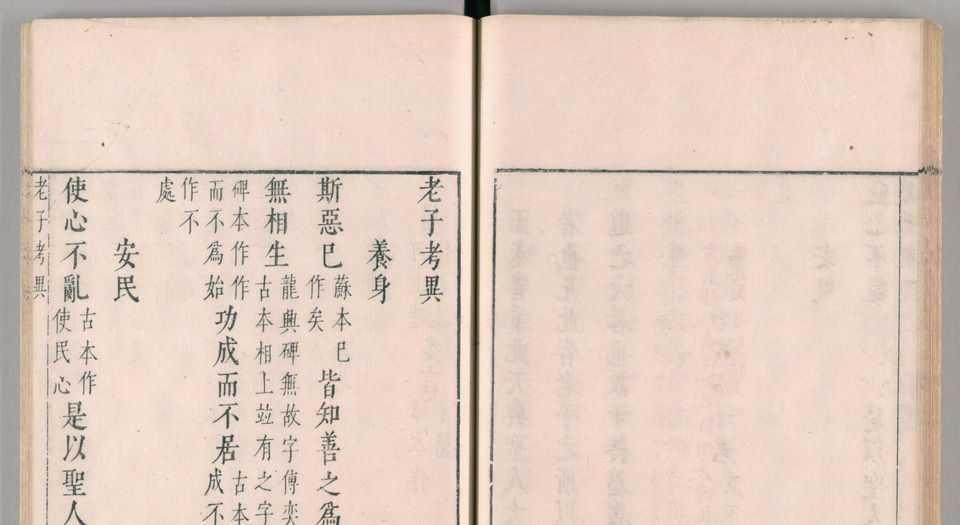 老子考異
養身
斯惡已蘇本已作矣皆知善之為
無相生龍興碑無故字傳奕古本相上竝有之字
碑本作作而不為始功成而不居古本成不
作不處
安民
使心不亂古本作使民心是以聖人
老子考異